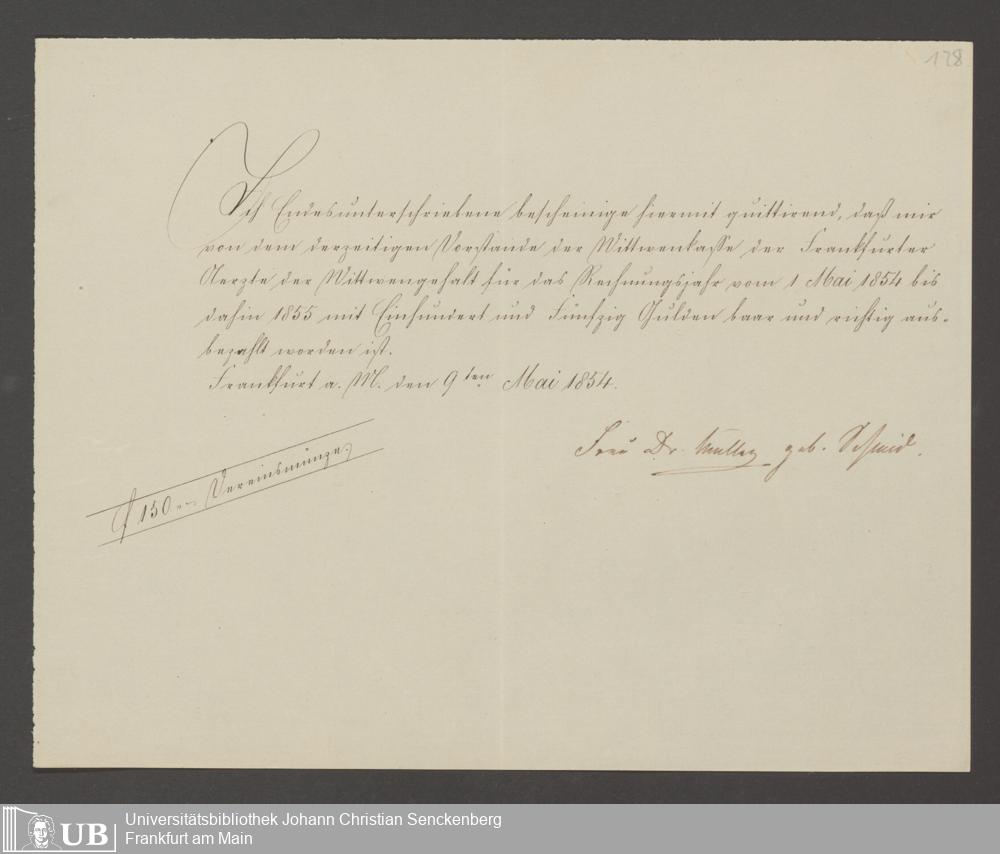 128
Ich Endesunterschriebene bescheinige hiermit quittirend, daß mir
von dem derzeitigen Vorstande der Wittwenkasse der Frankfurter
Aerzte der Wittwengehalt für das Rechnungsjahr vom 1 Mai 1854 bis
dahin 1855 mit Einhundert und Fünfzig Gulden baar und richtig aus-
bezahlt worden ist.
Frankfurt a. M. den 9ten Mai 1854.
Frau Dr. Müller geb. Schmid.
f 150 Vereinsmünze.
UB
Universitätsbibliothek Johann Christian Senckenberg
Frankfurt am Main